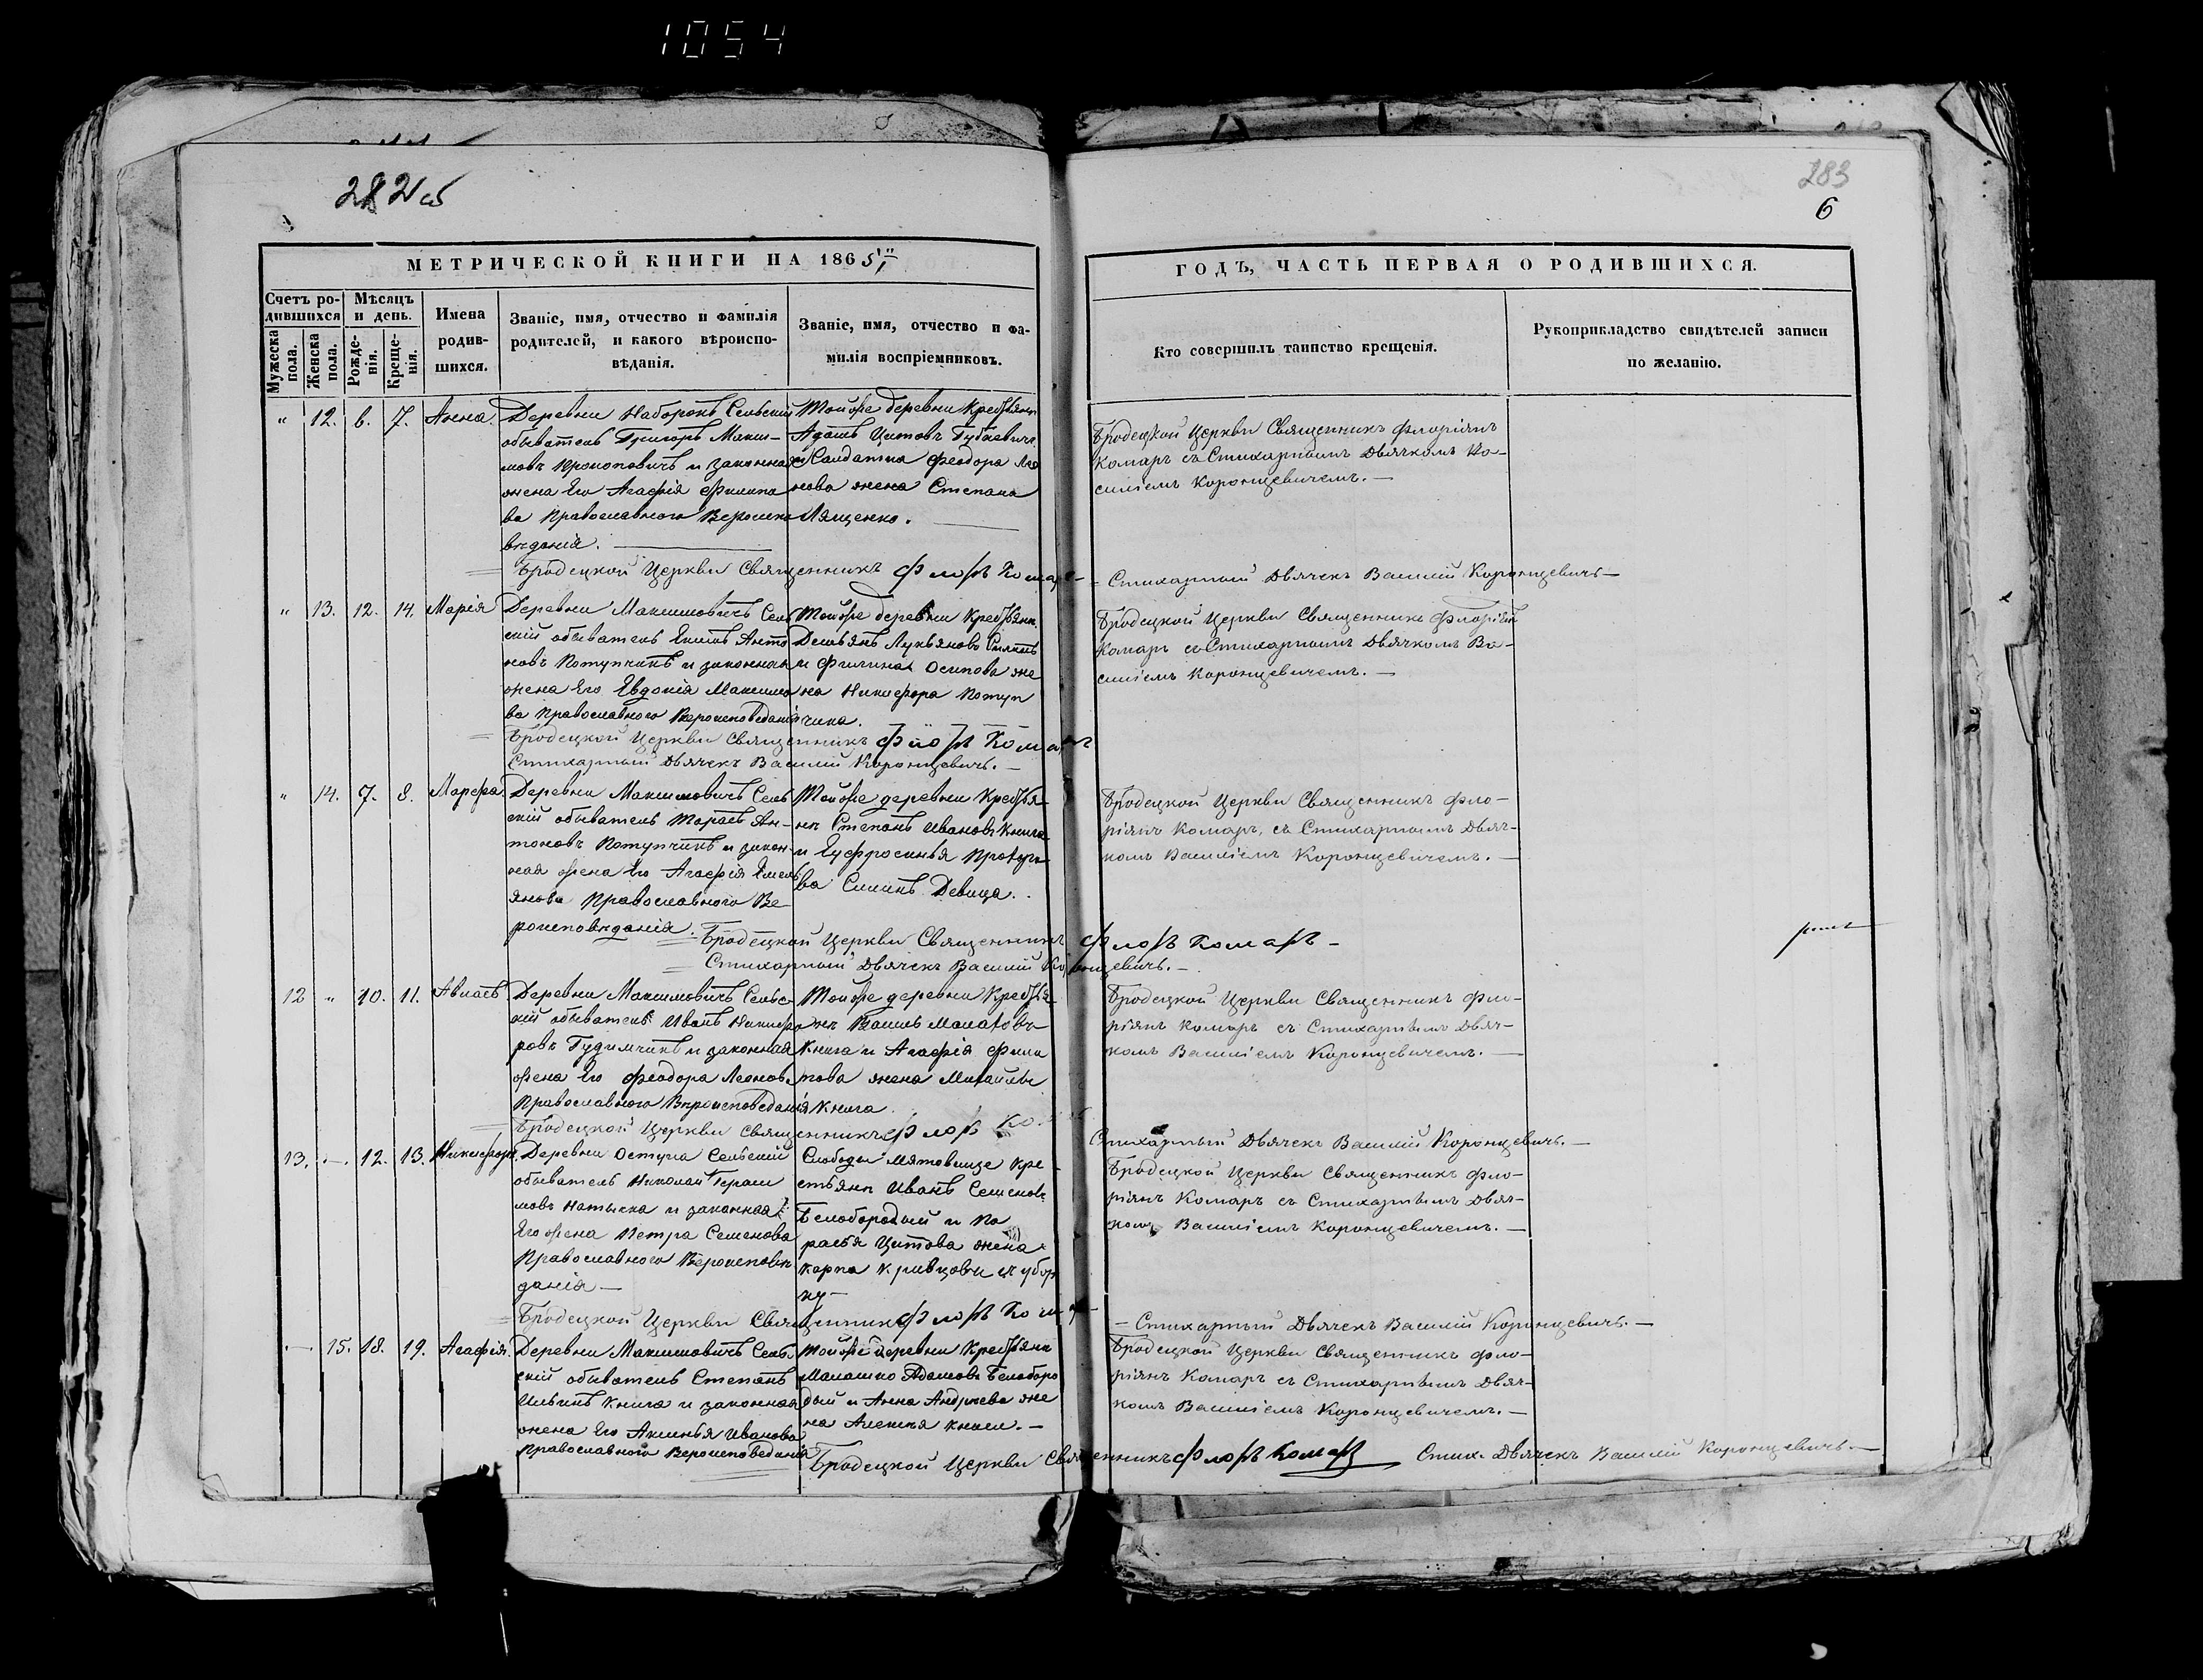 1054
282 об
283
6
МЕТРИЧЕСКОЙ КНИГИ НА 1865
ГОДЪ, ЧАСТЬ ПЕРВАЯ О РОДИВШИХСЯ.
Счетъ ро-
дившихся
Мѣсяцъ
и день.
Мужеска
пола.
Женска
пола.
Рожде-
нія.
Креще-
нія.
Имена
родив-
шихся.
Званіе, имя, отчество и фамилія
родителей, и какого вѣроиспо-
вѣданія.
Званіе, имя, отчество и фа-
милія воспріемниковъ.
Кто совершилъ таинство крещенія.
Рукоприкладство свидѣтелей записи
по желанію.
" 12. 6. 7. Анна.
Деревни Наборокъ Сельскій
обыватель Григорій Макси-
мовъ Прокоповичъ и законная
жена Его Агафія Филипо
ва Православного Вероиспо
вѣданія.
Тойже деревни Крестьяни
Адамъ Цитовъ Губкевичъ
и Салдатка Феодора Ле
нова жена Степана
Лященко.
Бродецкой Церкви Священникъ Флоріянъ
Комаръ съ Стихарнымъ Дьячкомъ Ва-
силіемъ Коронцевичемъ. —
Бродецкой Церкви Священникъ Флоръ Комаръ — Стихарный Дьячекъ Василій Коронцевичъ —
" 13. 12. 14. Марія
Деревни Максимовичъ Сель
скій обыватель Екимъ Анто
новъ Потупчикъ и законная
жена Его Евдокія Максимо
ва Православного Вероисповеданія
Тойже деревни Крестьяни
Демьянъ Лукьяновъ
и Филина Осипова же
на Никифора Потуп
чика.
Бродецкой Церкви Священникъ Флоріянъ
Комаръ съ Стихарнымъ Дьячкомъ Ва-
силіемъ Коронцевичемъ. —
Бродецкой Церкви Священникъ Флоръ Комаръ
Стихарный Дьячекъ Василій Коронцевичъ. —
" 14. 7. 8. Марфа.
Деревни Максимовичъ Сель
скій обыватель Тарасъ Ан-
тоновъ Потупчикъ и закон-
ная жена Его Агафія Емель
янова Православного Ве-
роисповѣданія.
Тойже деревни Крестья-
нъ Степанъ Ивановъ Книга
и Еуфросинья
ва Девица.
Бродецкой Церкви Священникъ Фло-
ріянъ Комаръ, съ Стихарнымъ Дьяч-
комъ Василіемъ Коронцевичемъ. —
Бродецкой Церкви Священникъ Флоръ Комаръ —
Стихарный Дьячекъ Василій Коронцевичъ. —
12 " 10. 11.
Деревни Максимовичъ Сельс-
кій обыватель Иванъ Никифо
ровъ Гудимчикъ и законная
жена Его Феодора Леонова
Православного Вѣроисповеданія
Тойже деревни Крестья-
нъ Малаховъ
Книга и Агафія Фили
пова жена Михайлы
Книга.
Бродецкой Церкви Священникъ Фло-
ріянъ Комаръ съ Стихарнымъ Дьяч-
комъ Василіемъ Коронцевичемъ. —
Бродецкой Церкви Священникъ Флоръ Стихарный Дьячекъ Василій Коронцевичъ. —
13. — 12. 13. Никифоръ.
Деревни Остуга Сельскій
обыватель Николай Гераси
мовъ Натыкка и законная
Его жена Петра Семенова
Православного Вероисповѣ
данія —
Слободы Мятовище Кре-
стьянъ Иванъ Семеновъ
Белобородый и Па
раскѣя Цитова жена
Карпа
Бродецкой Церкви Священникъ Фло-
ріянъ Комаръ съ Стихарнымъ Дьяч-
комъ Василіемъ Коронцевичемъ. —
Бродецкой Церкви Священникъ Флоръ Комаръ — Стихарный Дьячекъ Василій Коронцевичъ. —
— 15. 18. 19. Агафія.
Деревни Максимовичъ Сель
скій обыватель Степанъ
Ильинъ Книга и законная
жена Его Аксинья Иванова
Православного Вероисповеданія
Тойже деревни Крестьянъ
Малашко Адамовъ Белоборо
дый и Анна Андреева же
на Алексея Книги. —
Бродецкой Церкви Священникъ Фло-
ріянъ Комаръ съ Стихарнымъ Дьяч-
комъ Василіемъ Коронцевичемъ. —
Бродецкой Церкви Священникъ Флоръ Комаръ Стих. Дьячекъ Василій Коронцевичъ. —